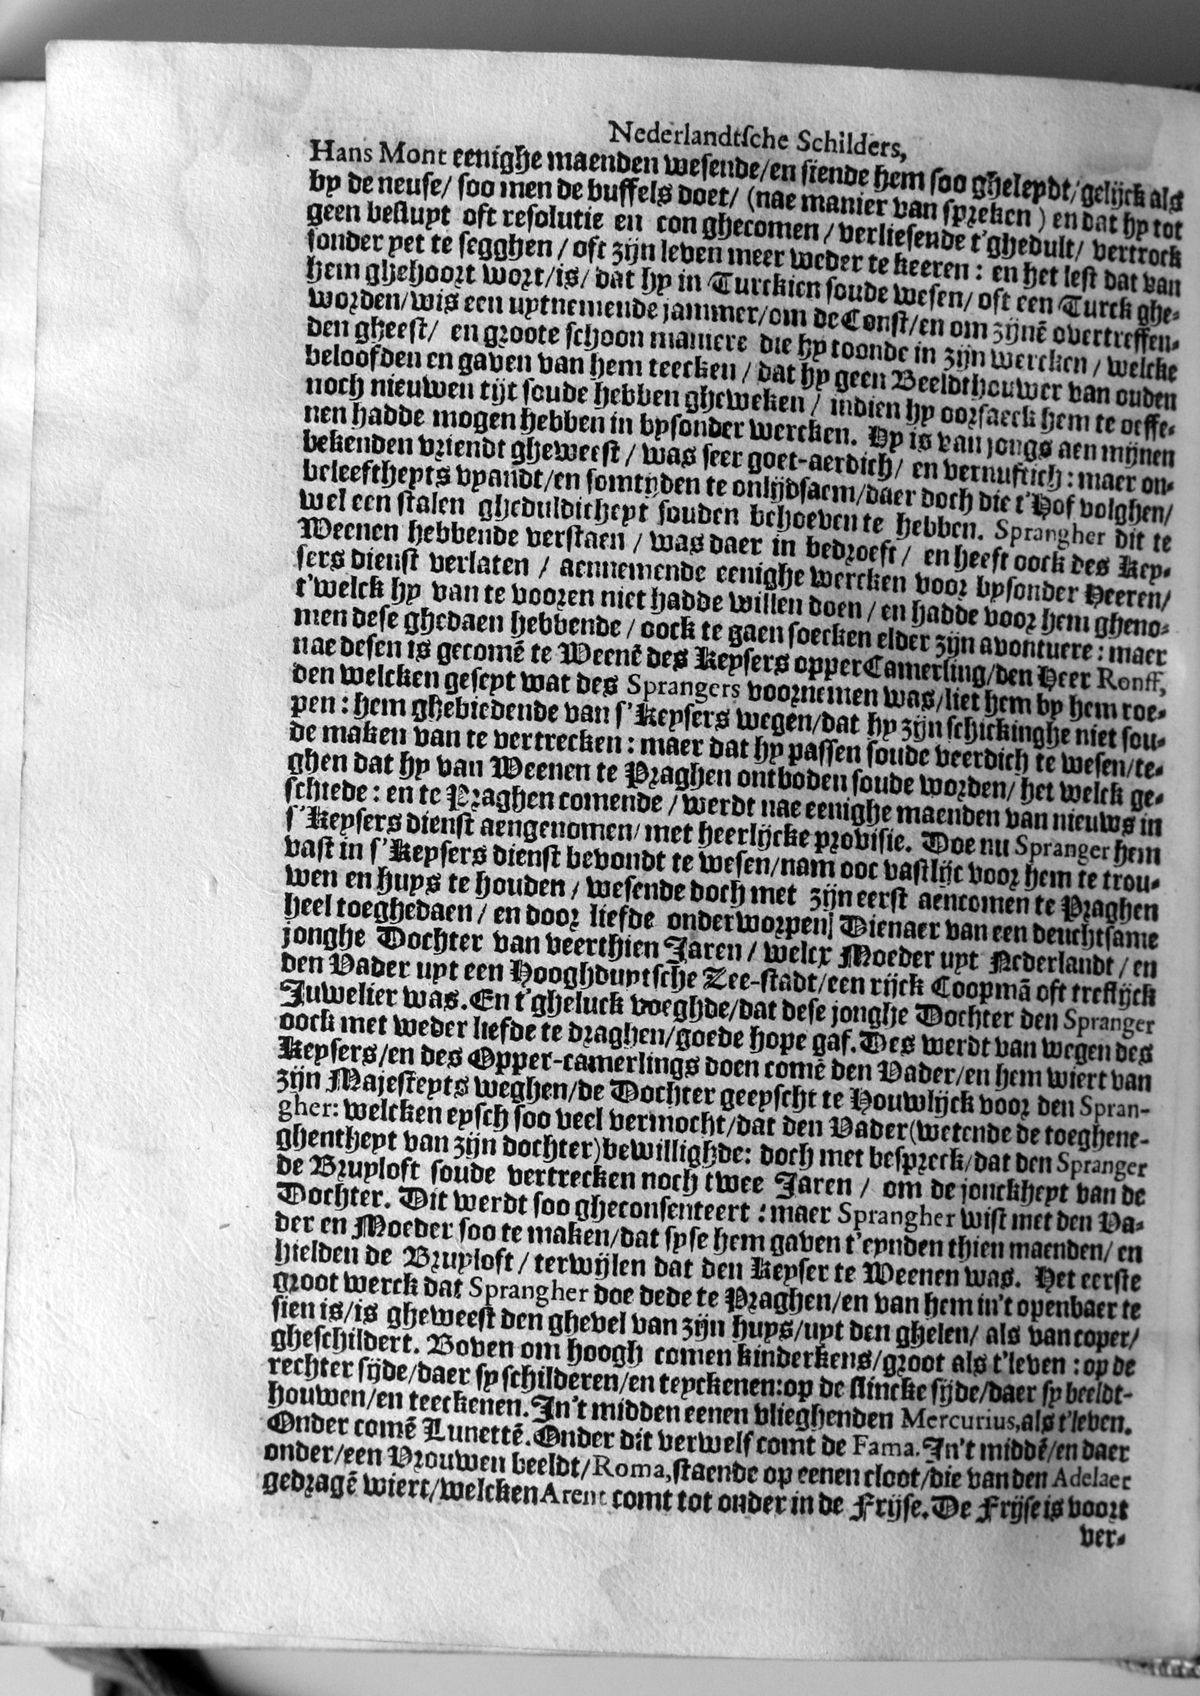 Nederlandtsche Schilders,
Hans Mont eenighe maenden wesende/en siende hem soo gheleydt/gelijck als
by de neuse/ soo men de buffels doet/ (nae manier van spreken ) en dat hy tot
geen besluyt oft resolutie en con ghecomen/ verliesende t'ghedult/ vertrock
sonder yet te segghen/ oft zijn leven meer weder te keeren: en het lest dat van
hem ghehoort wort/is/ dat hy in Turckien soude wesen/ oft een Turck ghe-
worden/wis een uytnemende jammer/om de Const/en om zijnē overtreffen-
den gheest/ en groote schoon maniere die hy toonde in zijn wercken/ welcke
beloofden en gaven van hem teecken/ dat hy geen Beeldthouwer van ouden
noch nieuwen tijt soude hebben gheweken/ indien hy oorsaeck hem te oeffe-
nen hadde mogen hebben in bysonder wercken. Hy is van jongs aen mijnen
bekenden vriendt gheweest/ was seer goet-aerdich/ en vernuftich: maer on-
beleeftheyts vyandt/en somtijden te onlijdsaem/daer doch die t'Hof volghen/
wel een stalen gheduldicheyt souden behoeven te hebben. Sprangher dit te
Weenen hebbende verstaen/ was daer in bedroeft/ en heeft oock des Key-
sers dienst verlaten/ aennemende eenighe wercken voor bysonder Heeren/
t'welck hy van te vooren niet hadde willen doen/ en hadde voor hem gheno-
men dese ghedaen hebbende/ oock te gaen soecken elder zijn avontuere: maer
nae desen is gecomē te Weenē des Keysers opperCamerling/den Heer Ronff,
den welcken geseyt wat des Sprangers voornemen was/liet hem by hem roe-
pen: hem ghebiedende van s'Keysers wegen/dat hy zijn schickinghe niet sou-
de maken van te vertrecken: maer dat hy passen soude veerdich te wesen/te-
ghen dat hy van Weenen te Praghen ontboden soude worden/ het welck ge-
schiede: en te Praghen comende/ werdt nae eenighe maenden van nieuws in
s'Keysers dienst aengenomen/ met heerlijcke provisie. Doe nu Spranger hem
vast in s'Keysers dienst bevondt te wesen/nam ooc vastlijc voor hem te trou-
wen en huys te houden/ wesende doch met zijn eerst aencomen te Praghen
heel toeghedaen/ en door liefde onderworpen Dienaer van een deuchtsame
jonghe Dochter van veerthien Jaren/ welcx Moeder uyt Nederlandt/ en
den Vader uyt een Hooghduytsche Zee-stadt/een rijck Coopmā oft treflijck
Juwelier was. En t'gheluck voeghde/dat dese jonghe Dochter den Spranger
oock met weder liefde te draghen/goede hope gaf. Des werdt van wegen des
Keysers/en des Opper-camerlings doen comē den Vader/en hem wiert van
zijn Majesteyts weghen/de Dochter geeyscht te Houwlijck voor den Spran-
gher: welcken eysch soo veel vermocht/dat den Vader(wetende de toeghene-
ghentheyt van zijn dochter)bewillighde: doch met bespreck/dat den Spranger
de Bruyloft soude vertrecken noch twee Jaren/ om de jonckheyt van de
Dochter. Dit werdt soo gheconsenteert: maer Sprangher wist met den Va-
der en Moeder soo te maken/dat syse hem gaven t'eynden thien maenden/ en
hielden de Bruyloft/ terwijlen dat den Keyser te Weenen was. Het eerste
groot werck dat Sprangher doe dede te Praghen/en van hem in't openbaer te
sien is/is gheweest den ghevel van zijn huys/uyt den ghelen/ als van coper/
gheschildert. Boven om hoogh comen kinderkens/groot als t'leven: op de
rechter sijde/daer sy schilderen/en teyckenen:op de slincke sijde/daer sy beeldt-
houwen/en teeckenen. In't midden eenen vlieghenden Mercurius,als t'leven.
Onder comē Lunettē. Onder dit verwelf comt de Fama. In't middē/en daer
onder/een Vrouwen beeldt/Roma,staende op eenen cloot/die van den Adelaer
gedragē wiert/welcken Arent comt tot onder in de Frijse. De Frijse is voort
ver-